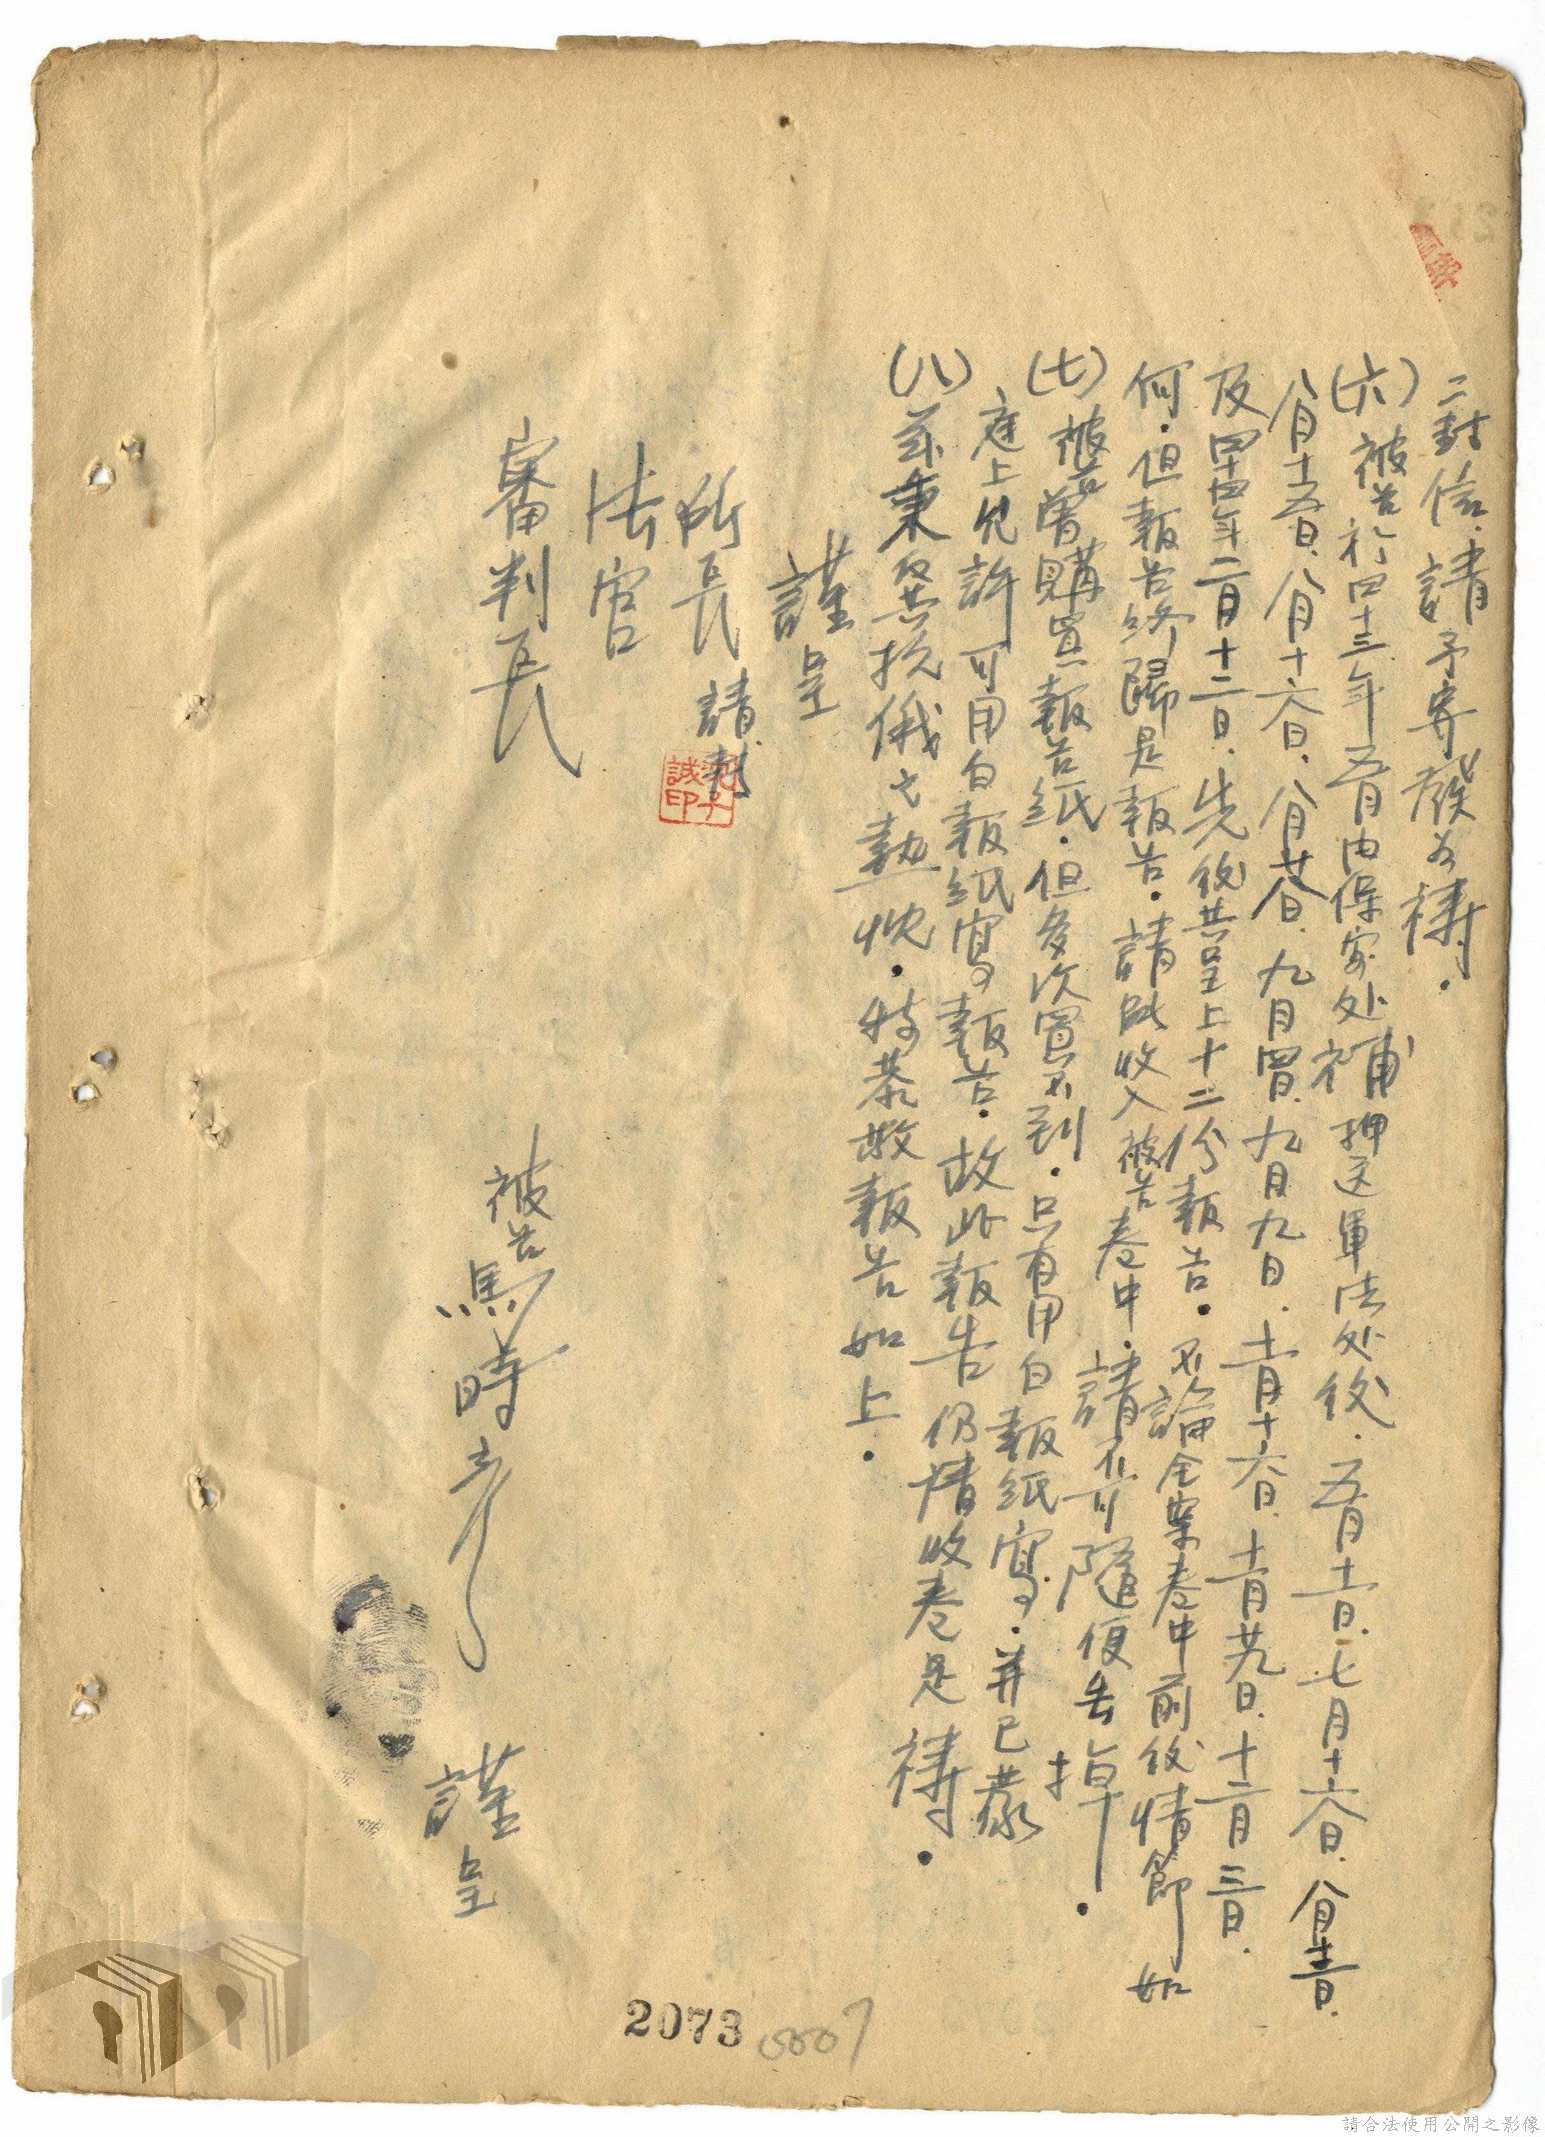 二封信．請予寄發為禱．
(六)被告於四十三年五月由保安处補押送軍法处後．五月十一日．七月十六日．八月十一日．
八月十五日．八月十六日．八月廿日．九月四日．九月九日．十一月十六日．十一月廿九日．十二月三日．
及四十四年二月十二日．先後共呈上十二份報告．不論全案卷中前後情節如
何．但報告終歸是報告．請此收入被告卷中．請不可隨便丟掉．
(七)被告曾購買報告紙．但多次買不到．只有用白報紙寫．并已蒙
庭上允許可用白報紙寫報告．故此報告仍請收卷是禱．
(八)茲秉反共抗俄之熱忱．特恭敬報告如上．
謹呈
所長 請轉
法官
審判長
被告 馬時彥 謹呈
誠印
2073
0007
請合法使用公開之影像